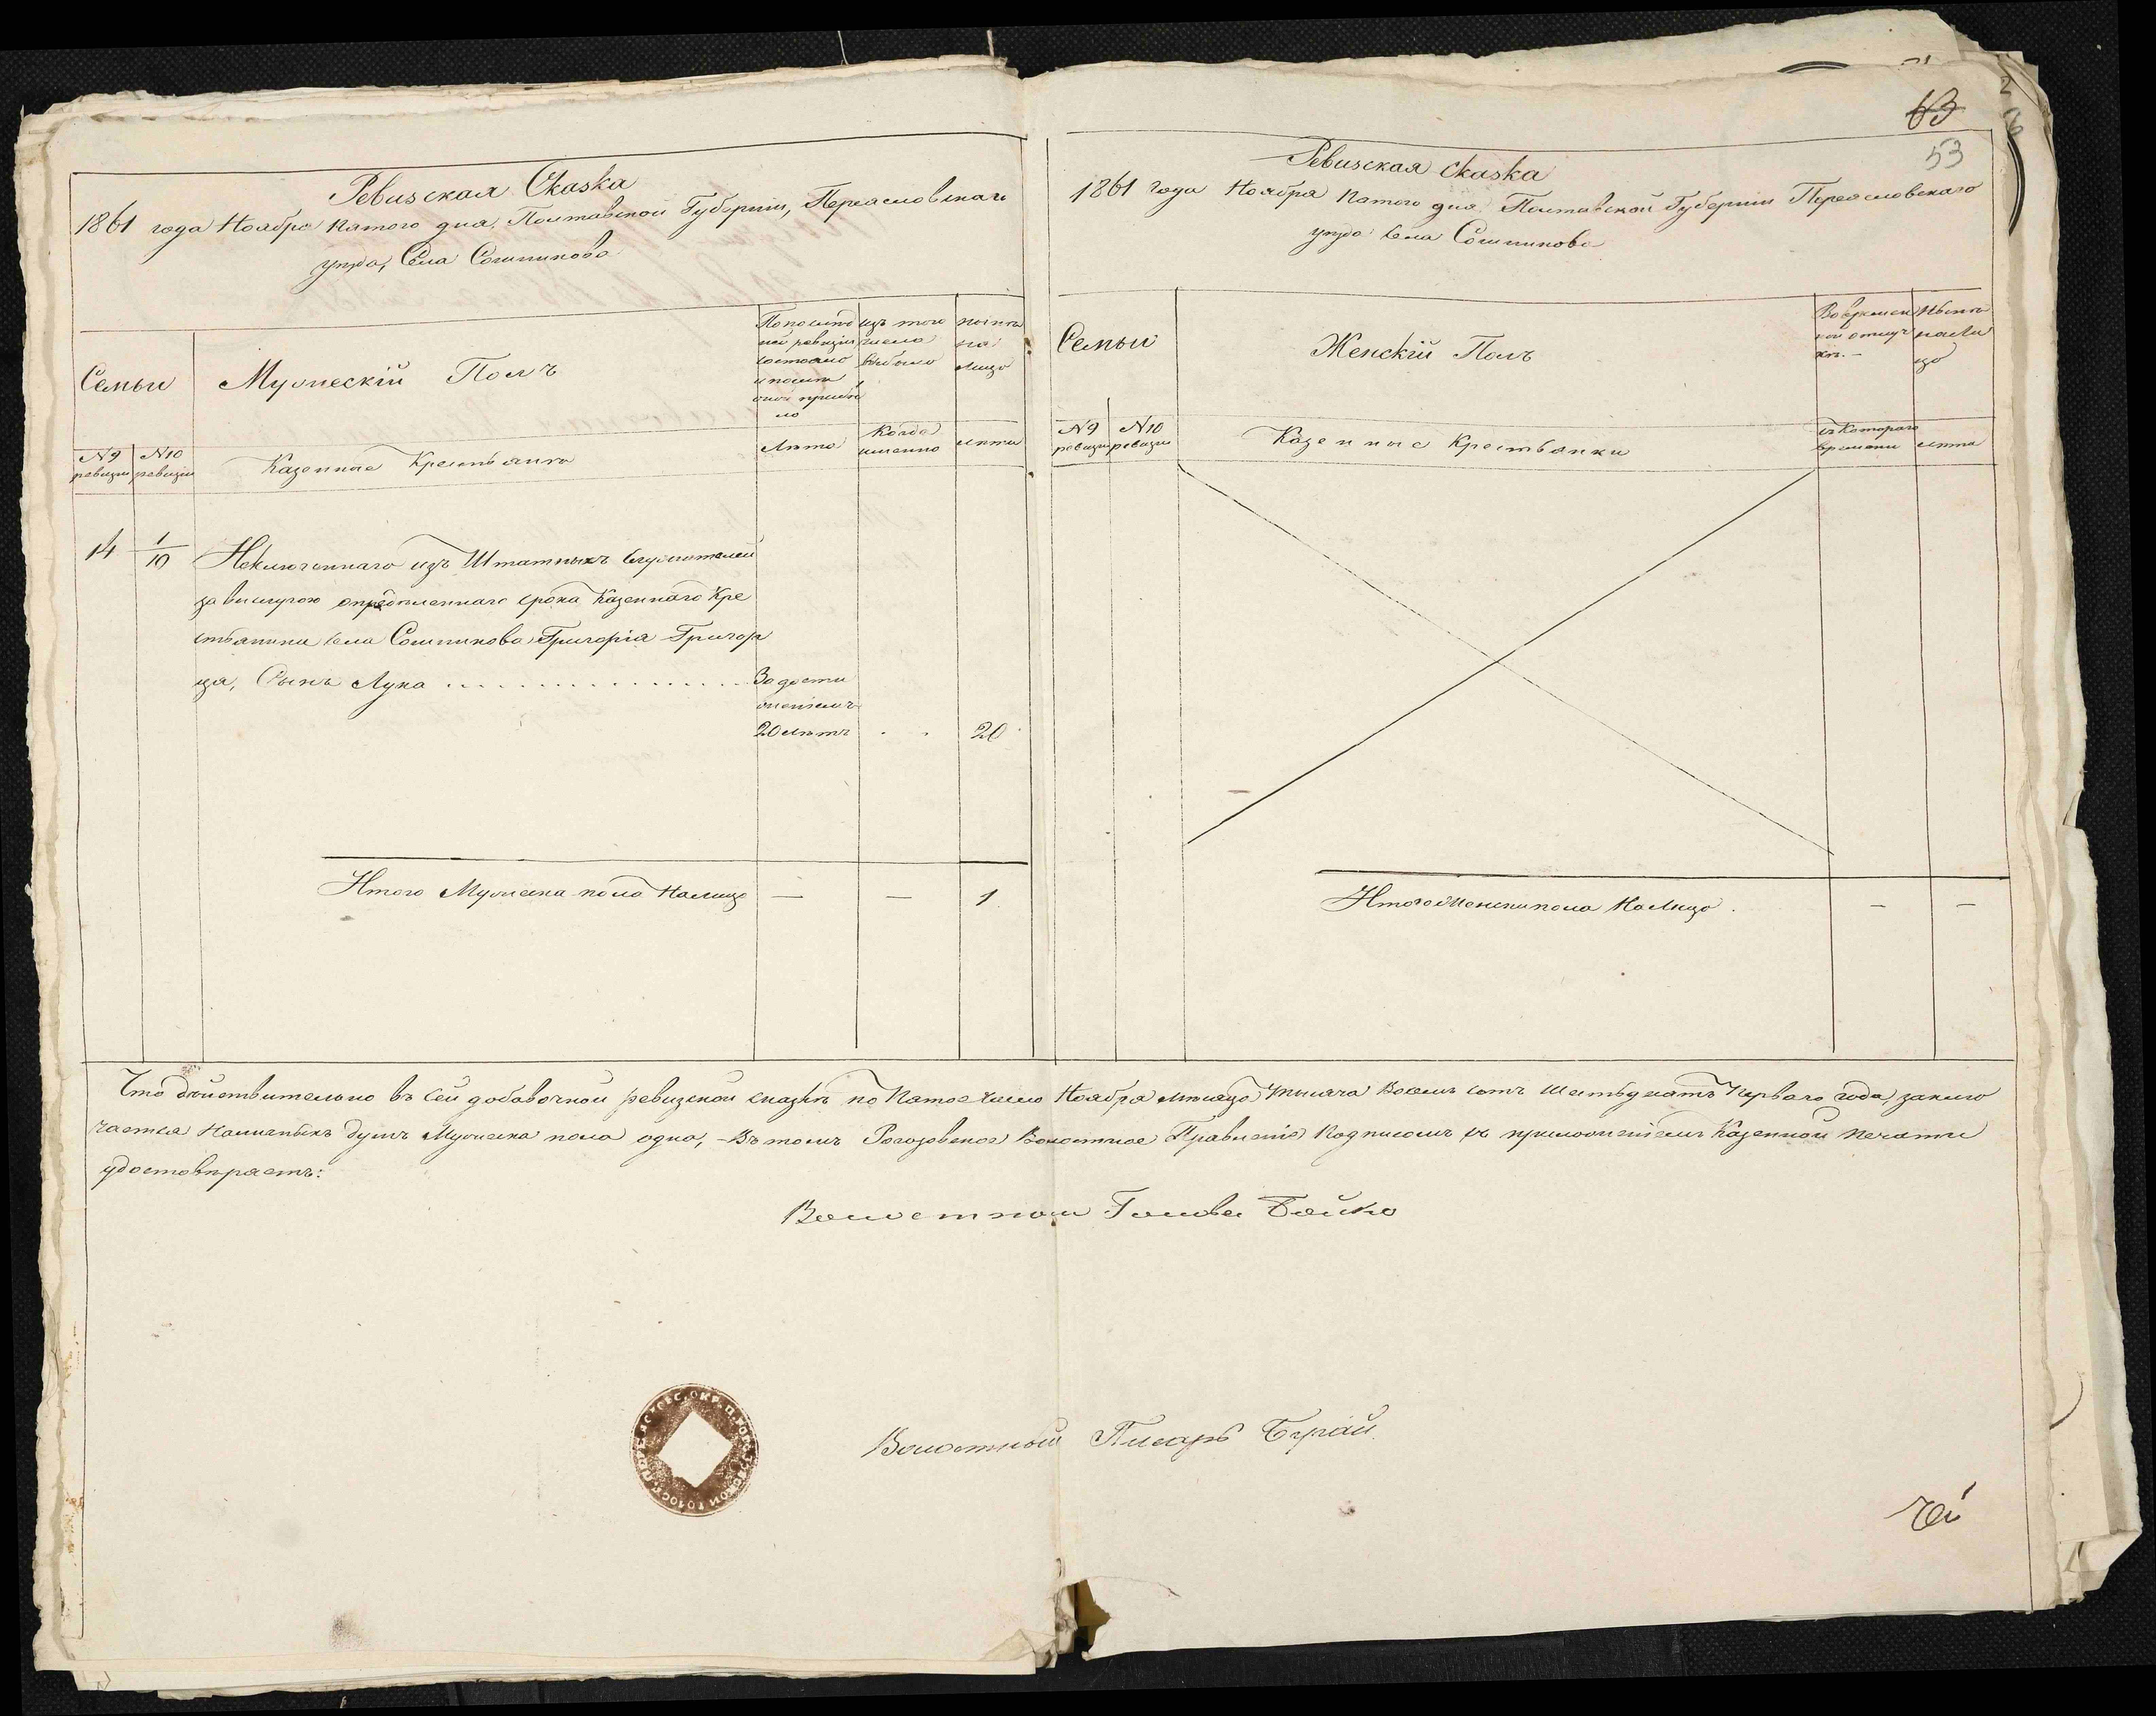 Ревизская Сказка
1861 года Ноября пятого дня, Полтавской Губернии, Переясловскаго
уѣзда, Села Сошникова
Семьи
Мужескій Полъ
По послѣд
ней ревизіи
состояло
и послѣ
оной прибы
ло
изъ того
числа
выбыло
нынѣ
на
лицо
№ 9
ревизіи
№ 10
ревизіи
Казенные Крестьяня
Лѣта
Когда
именно
лѣта
14
1
10
Исключеннаго изъ Штатныхъ служителей
за выслугою опредѣленнаго срока Казеннаго Кре
стьянина села Сошникова Григорія Григор
ца, Сынъ Лука
За дости
женіемъ
20 лѣтъ
20
Итого Мужеска пола Налицо
—
—
1
63
53
Ревизская Сказка
1861 года Ноября пятого дня Полтавской Губернии Переясловскаго
уѣзда села Сошникова
Семьи
Женскій Полъ
Во времен
ной отлуч
кѣ.–
Нынѣ
нали
цо
№ 9
ревизіи
№ 10
ревизіи
Казенные Крестьянки
съ Котораго
времени
лѣта
Итого Женска пола На Лицо
—
—
Что дѣйствительно въ сей добавочной ревизской сказкѣ по Пятое число Ноября мѣсяца тысяча Восемь сотъ шестьдесятъ Перваго года, заклю
чается Наличныхъ душъ Мужеска пола одна, – Въ томъ Рогозовское Волостное Правленіе подписомъ съ приложеніемъ Казенной печати
удостовѣряетъ:
Волостной Голова Бойко
Волостный Писарь